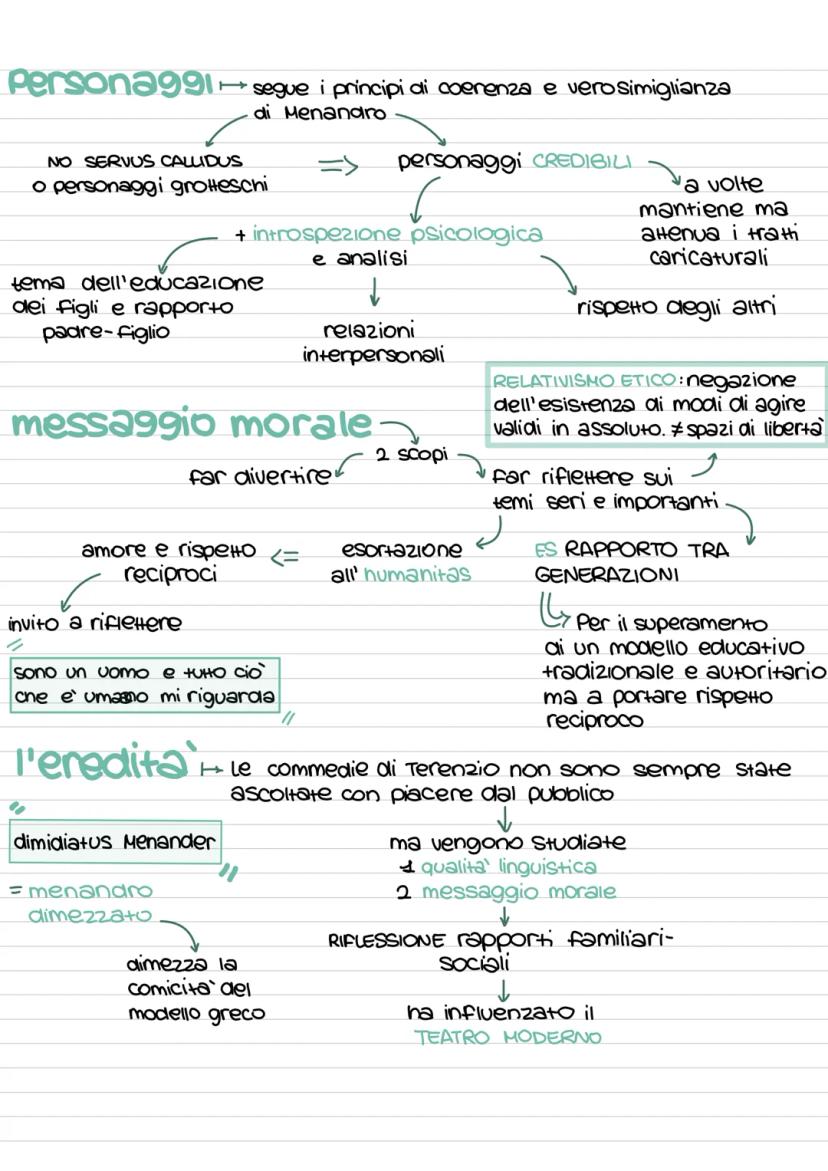 personaggi ↦ segue i principi di coerenza e verosimiglianza
di Menandro
NO SERVUS CALLIDUS
o personaggi grotteschi
⇒ personaggi CREDIBILI
a volte
mantiene ma
attenua i tratti
caricaturali
+ introspezione psicologica
e analisi
tema dell'educazione
dei figli e rapporto
padre-figlio
relazioni
interpersonali
rispetto degli altri
RELATIVISMO ETICO: negazione
dell'esistenza di modi di agire
validi in assoluto. ≠ spazi di libertà
messaggio morale
2 scopi
far divertire
far riflettere sui
temi seri e importanti
amore e rispetto
reciproci
<= esortazione
all'humanitas
ES RAPPORTO TRA
GENERAZIONI
invito a riflettere
"
sono un uomo e tutto ciò
che è umano mi riguarda
"
Per il superamento
di un modello educativo
tradizionale e autoritario
ma a portare rispetto
reciproco
l'eredità ↦ le commedie di Terenzio non sono sempre state
ascoltate con piacere dal pubblico
"
dimidiatus Menander
"
= menandro
dimezzato
dimezza la
comicità del
modello greco
ma vengono studiate
1 qualità linguistica
2 messaggio morale
RIFLESSIONE rapporti familiari-
sociali
ha influenzato il
TEATRO MODERNO